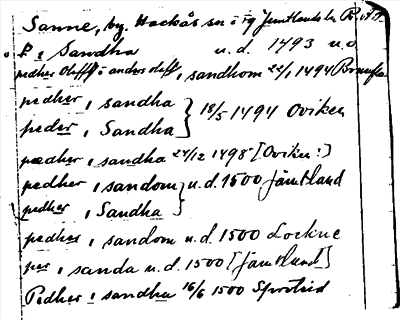 Sanne, by. Hackås sn i Jämtlands län R.A.P.
P. i Sandha u.d. 1493 u.o
pedher Olsff i anders olsff, sandhom 22/1 1494 Brunflo
pedher i sandha } 18/5 1494 Oviken
peder, i Sandha
pædher i sandha 24/12 1498 [Oviken:]
pedher i sandom } u.d. 1500 Jämtland
pedher i Sandha
pedher i sandom u.d. 1500 Lockne
per i sanda u.d. 1500 [Jämtland]
Pedher i sandha 16/6 1500